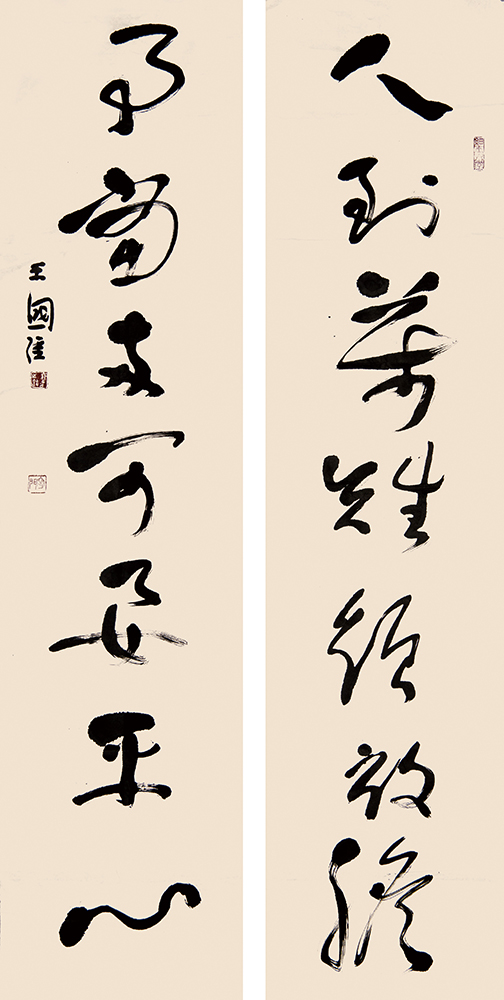 人到萬難須放膽
事當兩可要平心
王國維